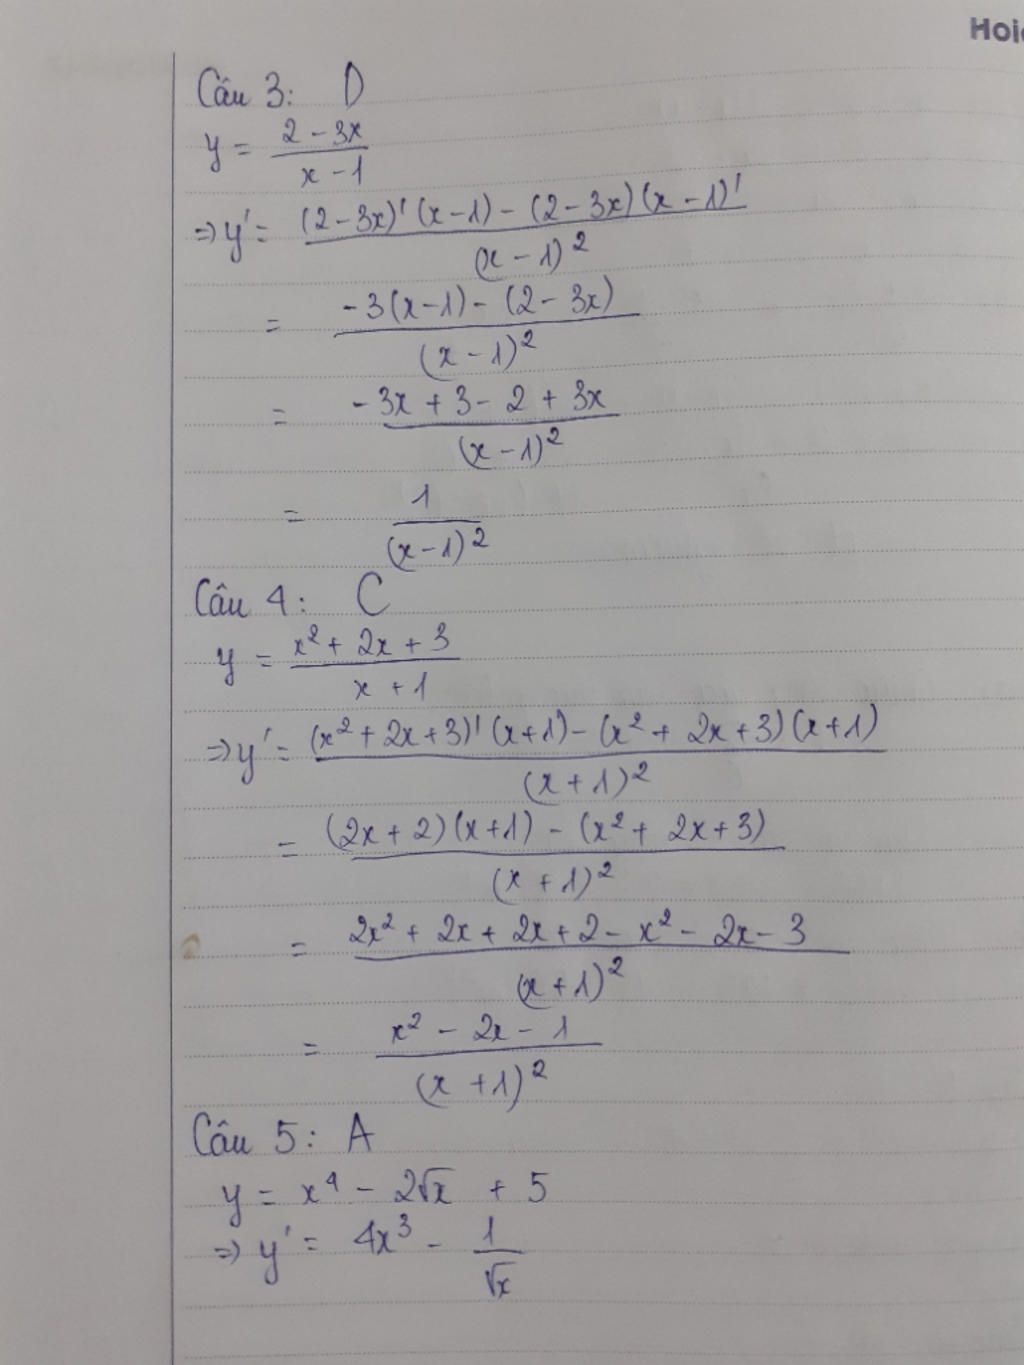 Hoi
Câu 3: D
y = \frac{2 - 3x}{x - 1}
⇒ y' = \frac{(2 - 3x)'(x - 1) - (2 - 3x)(x - 1)'}{(x - 1)^2}
= \frac{-3(x - 1) - (2 - 3x)}{(x - 1)^2}
= \frac{-3x + 3 - 2 + 3x}{(x - 1)^2}
= \frac{1}{(x - 1)^2}
Câu 4: C
y = \frac{x^2 + 2x + 3}{x + 1}
⇒ y' = \frac{(x^2 + 2x + 3)'(x + 1) - (x^2 + 2x + 3)(x + 1)}{(x + 1)^2}
= \frac{(2x + 2)(x + 1) - (x^2 + 2x + 3)}{(x + 1)^2}
= \frac{2x^2 + 2x + 2x + 2 - x^2 - 2x - 3}{(x + 1)^2}
= \frac{x^2 - 2x - 1}{(x + 1)^2}
Câu 5: A
y = x^4 - 2\sqrt{x} + 5
⇒ y' = 4x^3 - \frac{1}{\sqrt{x}}